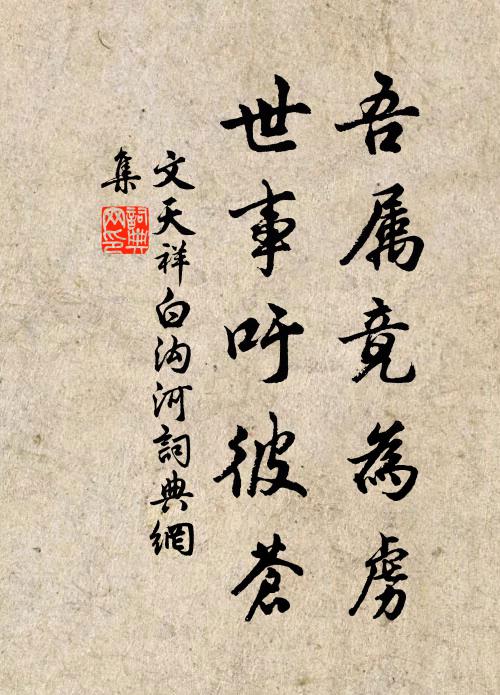 吾属竟為虜
世事吁彼蒼
文天祥白沟河詞典網
集
詞典
网印